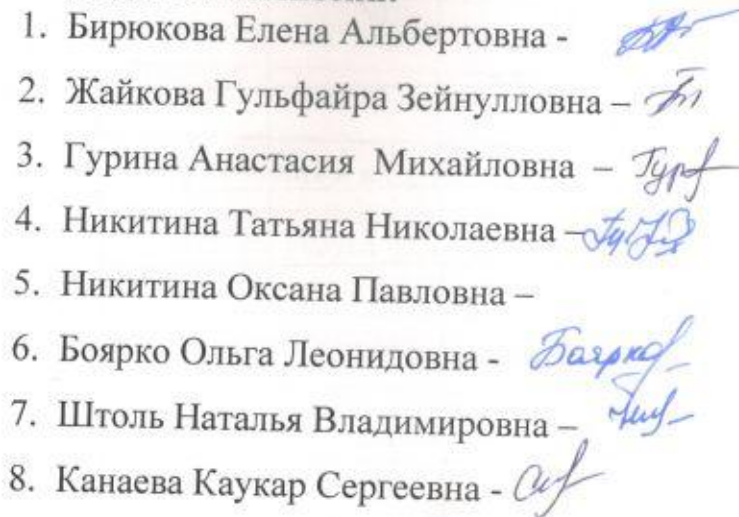 1. Бирюкова Елена Альбертовна -
2. Жайкова Гульфайра Зейнулловна –
3. Гурина Анастасия Михайловна – Гур
4. Никитина Татьяна Николаевна –
5. Никитина Оксана Павловна –
6. Боярко Ольга Леонидовна - Боярко
7. Штоль Наталья Владимировна –
8. Канаева Каукар Сергеевна -